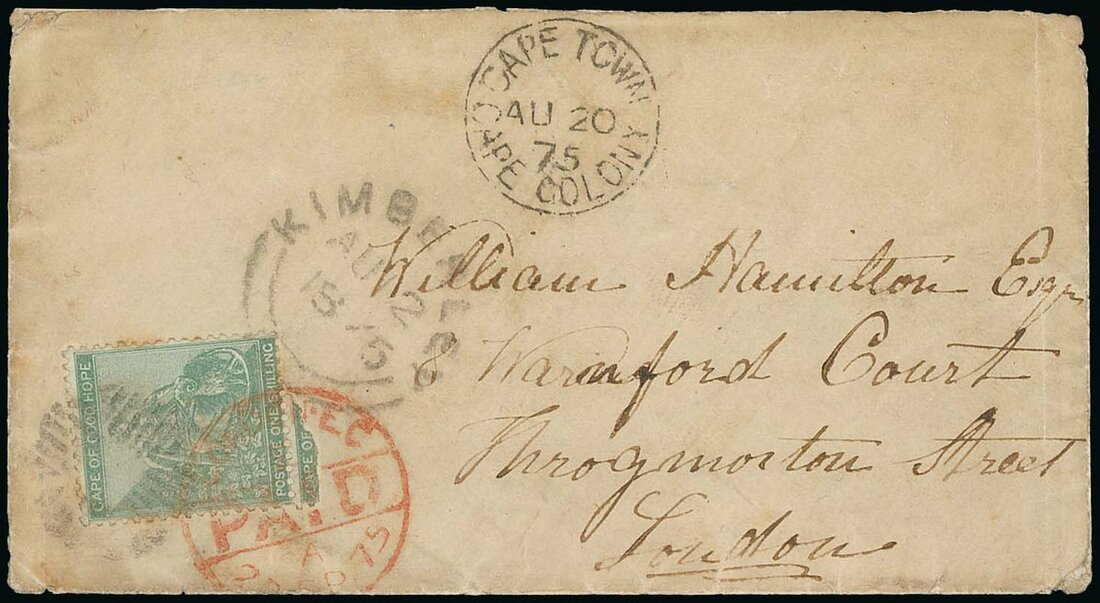 CAPE TOWN
AU 20
75
CAPE COLONY
KIMBERLEY
AU
12
75
William Hamilton Esqr
8 Warnford Court
Throgmorton Street
London
CAPE OF GOOD HOPE
POSTAGE ONE SHILLING
CAPE OF
EC
PAID
75